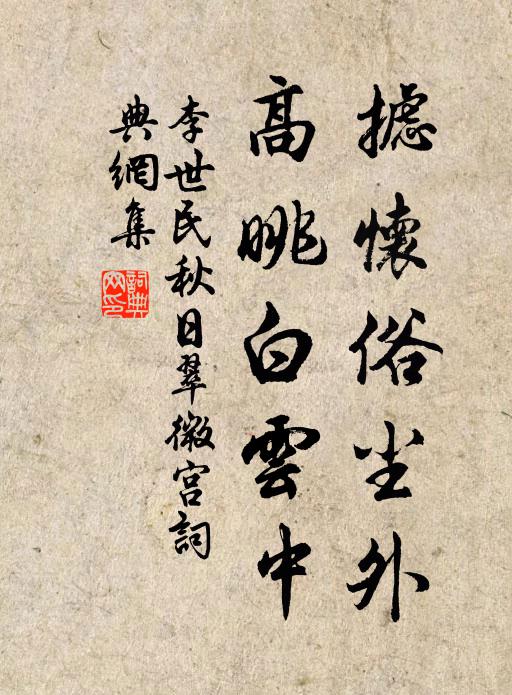 攄懷俗尘外
高眺白雲中
李世民秋日翠微宫詞
典網集
詞典网印